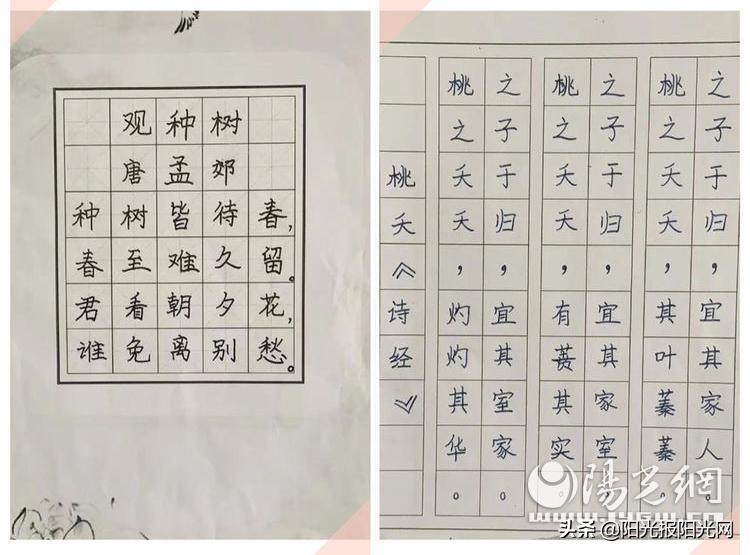 观种树
唐孟郊
种树皆待春,
春至难久留。
君看朝夕花,
谁免离别愁。
桃夭《诗经》
桃之夭夭,灼灼其华。
之子于归,宜其室家。
桃之夭夭,有蕡其实。
之子于归,宜其家室。
桃之夭夭,其叶蓁蓁。
之子于归,宜其家人。
陽光網
头条 @阳光报阳光网